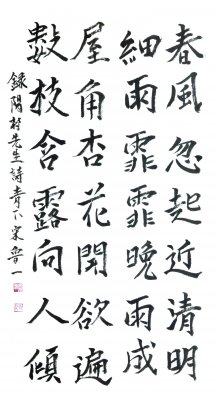 春風忽起近清明
細雨霏霏晚雨成
屋角杏花開欲遍
數枝含露向人傾
錄陽村先生詩青下宋一